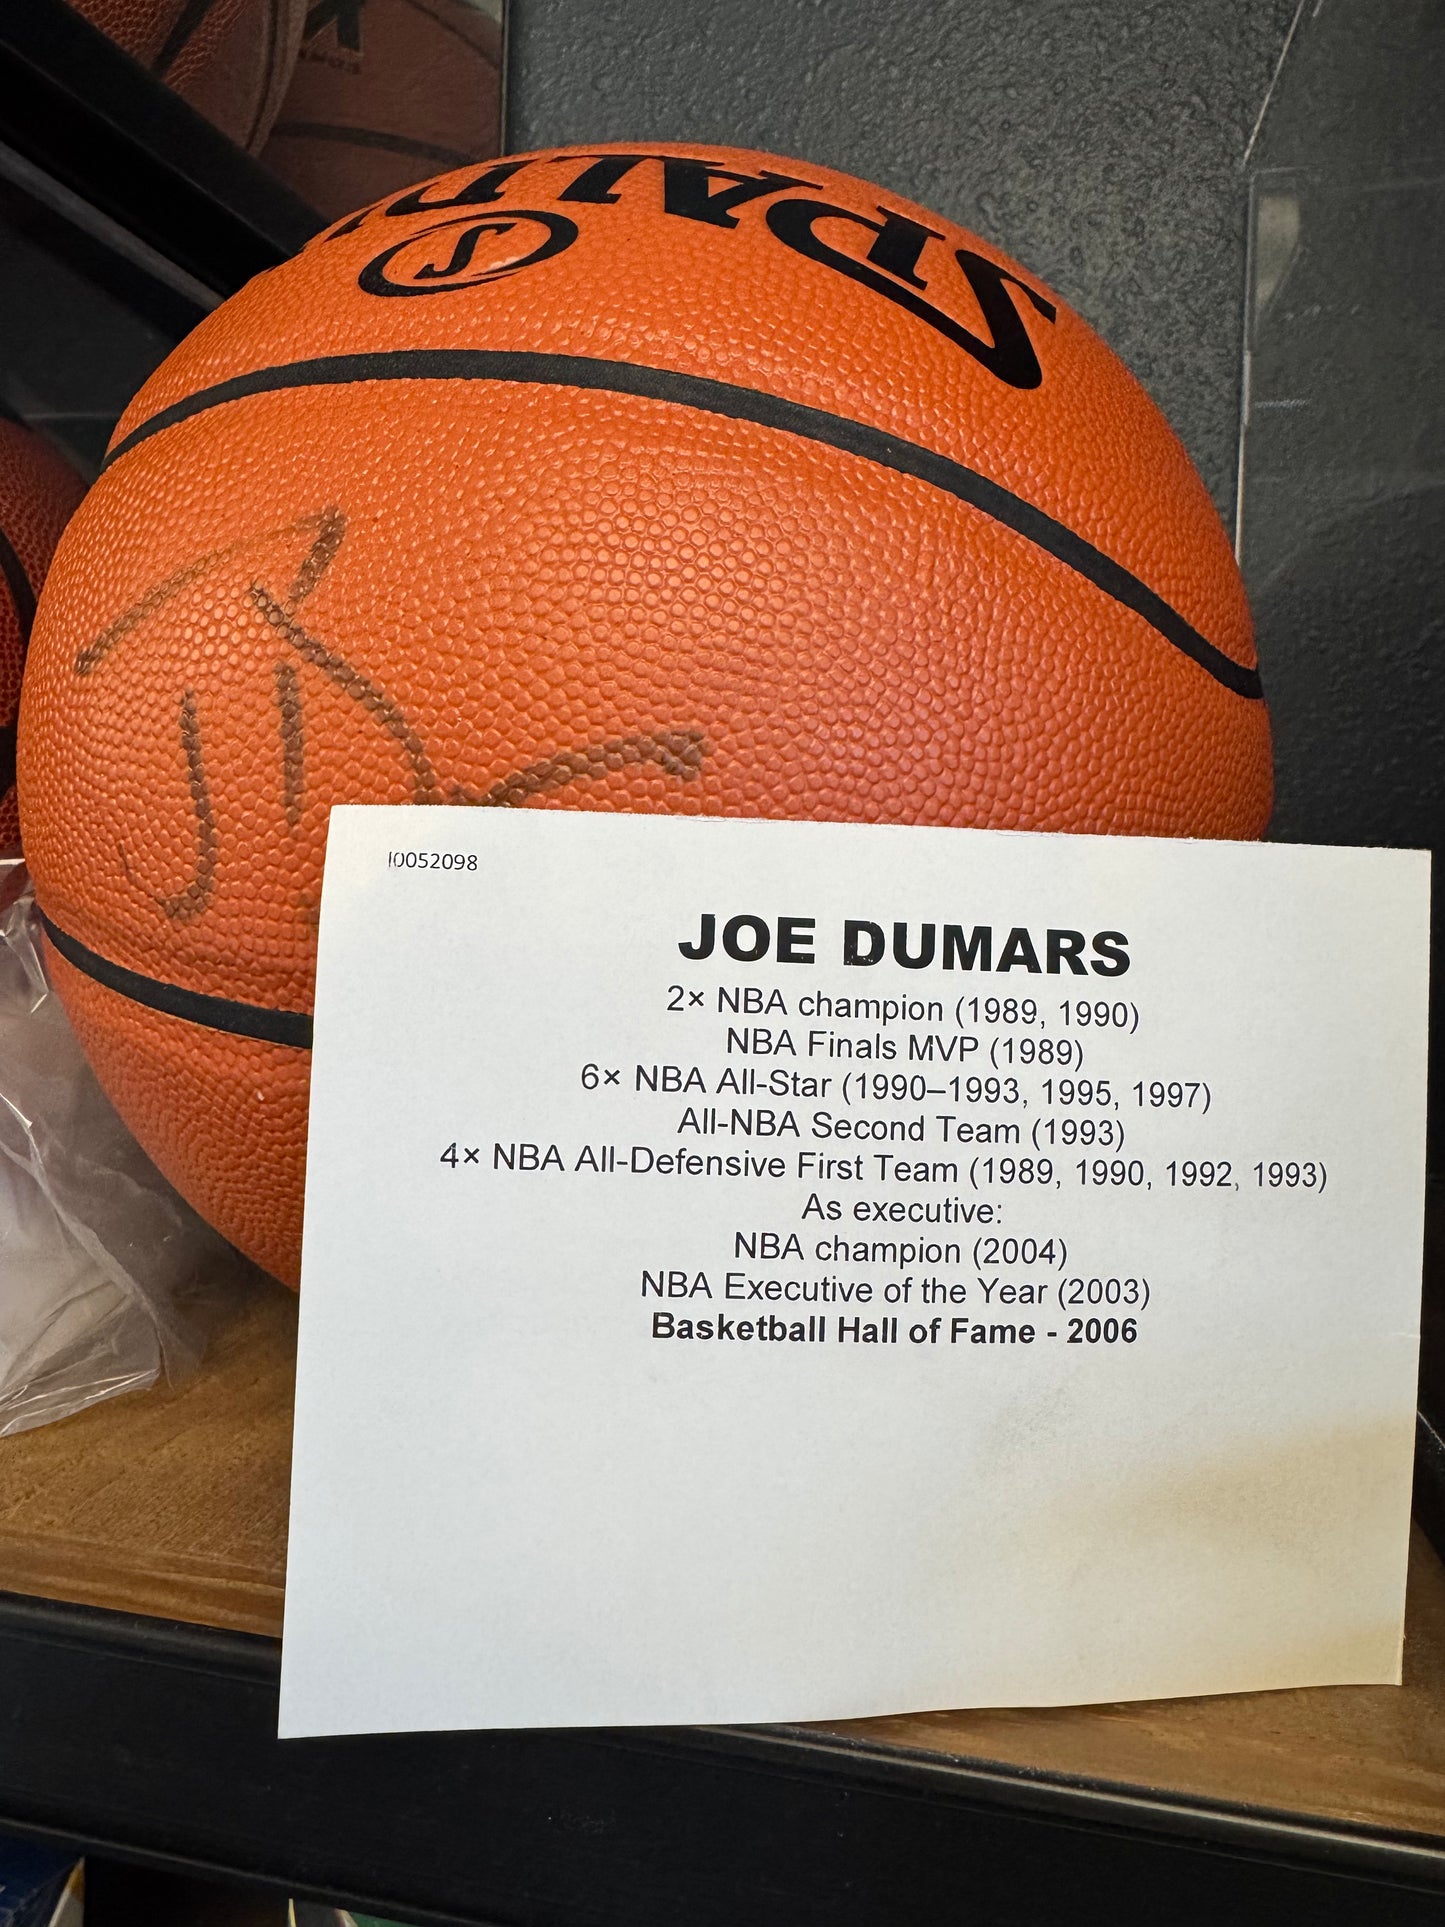 SPALD
I0052098
JOE DUMARS
2× NBA champion (1989, 1990)
NBA Finals MVP (1989)
6× NBA All-Star (1990–1993, 1995, 1997)
All-NBA Second Team (1993)
4× NBA All-Defensive First Team (1989, 1990, 1992, 1993)
As executive:
NBA champion (2004)
NBA Executive of the Year (2003)
Basketball Hall of Fame - 2006